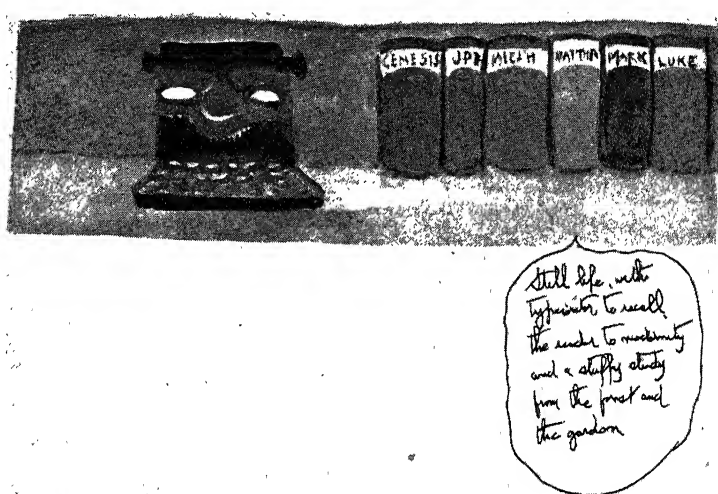 GENESIS JPS MICAH MATTHEW MARK LUKE
Still life, with
typewriter to recall
the reader to modernity
and a stuffy study
from the forest and
the garden